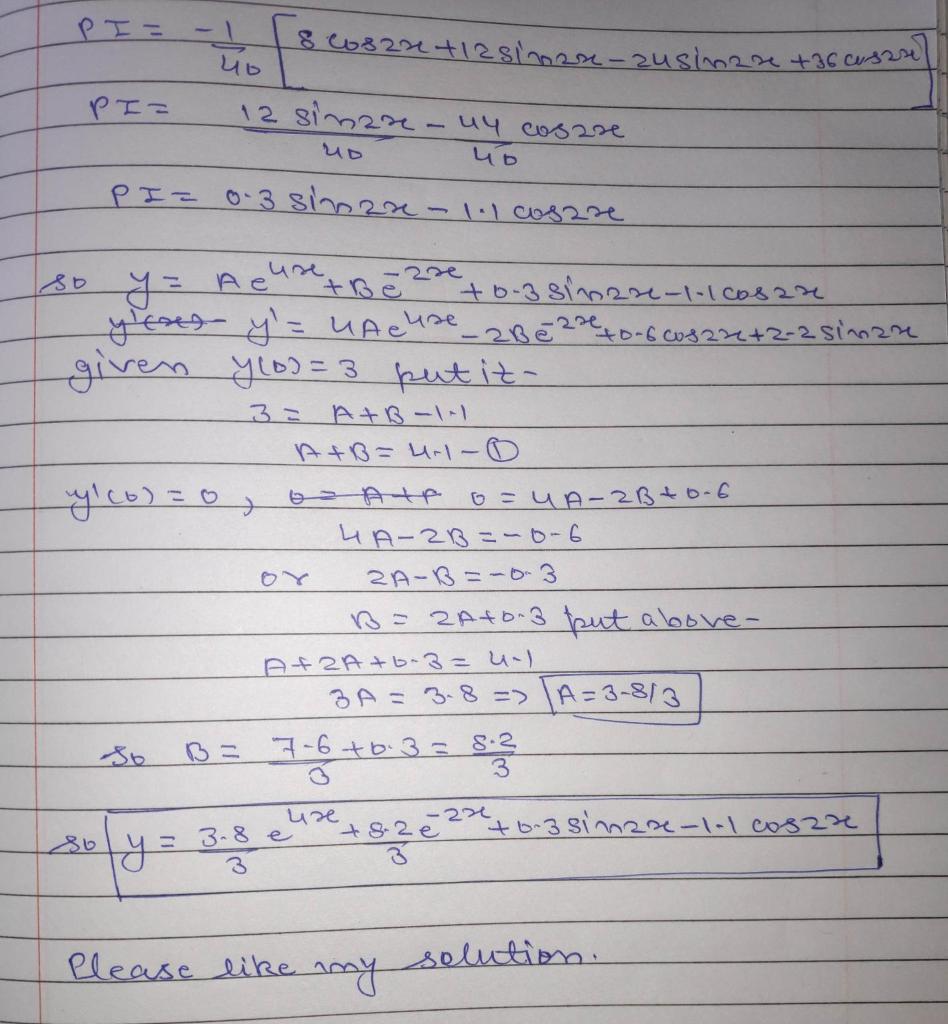 PI = -1/40 [8 cos2x + 12 sin2x - 24 sin2x + 36 cos2x]
PI = 12 sin2x/40 - 44 cos2x/40
PI = 0.3 sin2x - 1.1 cos2x
so y = Ae^4x + Be^-2x + 0.3 sin2x - 1.1 cos2x
y' = 4Ae^4x - 2Be^-2x + 0.6 cos2x + 2.2 sin2x
given y(0) = 3 put it -
3 = A + B - 1.1
A + B = 4.1 - ①
y'(0) = 0, 0 = 4A - 2B + 0.6
4A - 2B = -0.6
or 2A - B = -0.3
B = 2A + 0.3 put above -
A + 2A + 0.3 = 4.1
3A = 3.8 => A = 3.8/3
So B = 7.6/3 + 0.3 = 8.2/3
so y = 3.8/3 e^4x + 8.2/3 e^-2x + 0.3 sin2x - 1.1 cos2x
Please like my solution.